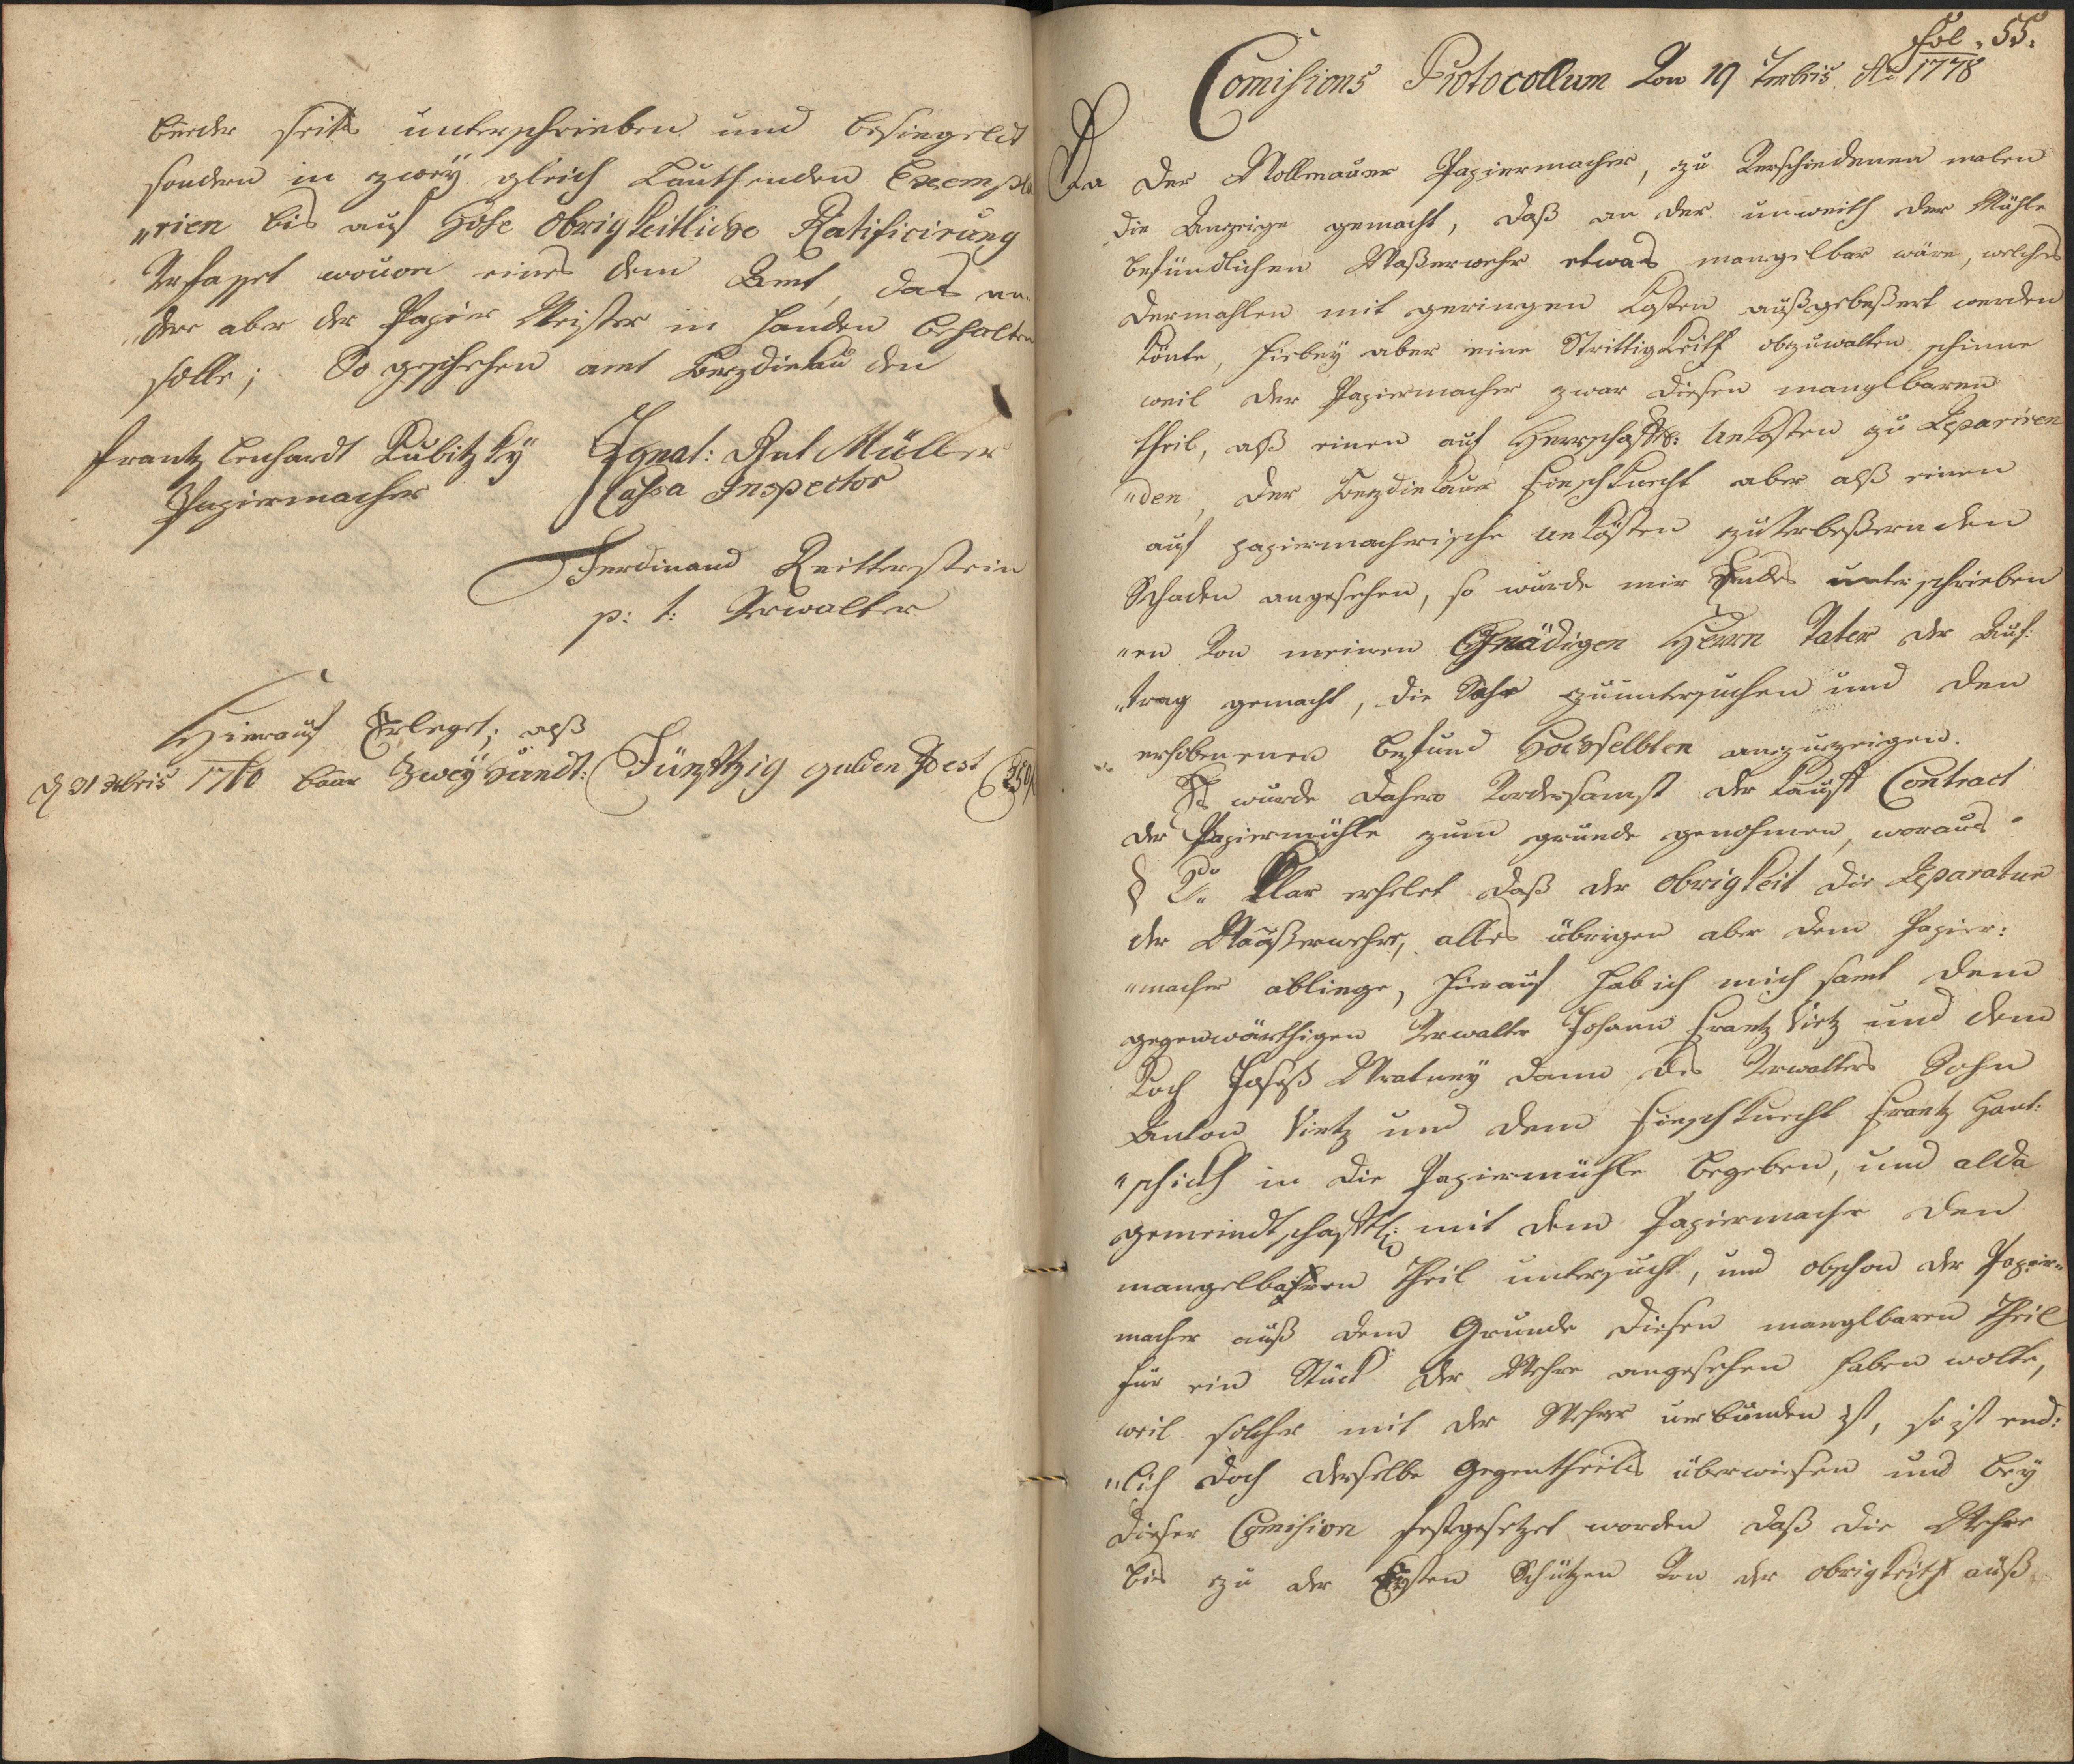 beeder seits unterschrieben und besiegelet
sondern in zweÿ gleich Lauthenden Exempla
„rien bis auf Hohe Obrigkeitliche Ratificirung
Verfasset wouon eines dem Amt, das an„
„dere aber der Papier Meister in handen behalten
solle; So geschehen amt Bezdiekau den
Frantz Lenhardt Kubitzkÿ Ignat: Ant Müller
Papiermacher Cassa Inspector
Ferdinand Reitterstein
p: t: Verwalter
Hierauf Erleget; alß
d 31 Xbris 1760 baar Zweÿ Hundt: Fünfftzig gulden Id est 250 f
Fol. 55.
Comissions Protocollum Von 19 7mbris Ao 1778
Da der Wollmauer Papiermacher, zu Verschiedenen malen
die Anzeige gemacht, daß an der unweith der Mühle
befündlichen Waßerwehr etwas mangelbar wäre, welches
dermahlen mit geringen Kosten außgebeßert werden
könte, hiebeÿ aber eine Strittigkeith obzuwalten schinne
weil der Papiermacher zwar diesen manglbaren
theil, alß einen auf Herrschafftl: Unkosten zu Reparieren
„den, der Bezdiekauer Fischknecht aber alß einen
auf papiermacherische Unkösten zu Verbeßernden
Schaden angesehen, so wurde mir Endes unterschrieben
„en Von meinen Gnädigen Herrn Vater der Auf:
„trag gemacht, die Sache zuuntersuchen und den
erhobenenen befund Hochselbten anzuzeigen.
Es wurde dahero Vordersamst der Kauff Contract
der Papiermühle zum grunde genohmen, woraus
§ 2do klar erhelet daß der Obrigkeit die Reparatur
der Waaßerwehre, alles übrigen aber dem Papier:
„macher abliege, hierauf hab ich mich samt dem
gegenwärthigen Verwalter Johann Frantz Vietz und dem
Koch Joseph Wratneÿ dann des Verwalters Sohn
Anton Vietz und dem Fischknecht Frantz Hant:
„schickh in die Papiermühle begeben, und alda
gemeindtschafftl: mit dem Papiermacher den
mangelbahren Theil untersucht, und obschon der Papier„
macher auß dem Grunde diesen manglbaren Theil
für ein Stück der Wehre angesehen haben wolte,
weil solcher mit der Wehre uerbunden ist, so ist end:
„lich doch derselbe Gegentheils überwiesen und beÿ
dieser Comission festgesetzet worden daß die Wehre
bis zu der Ersten Schützen Von der Obrigkeith auß